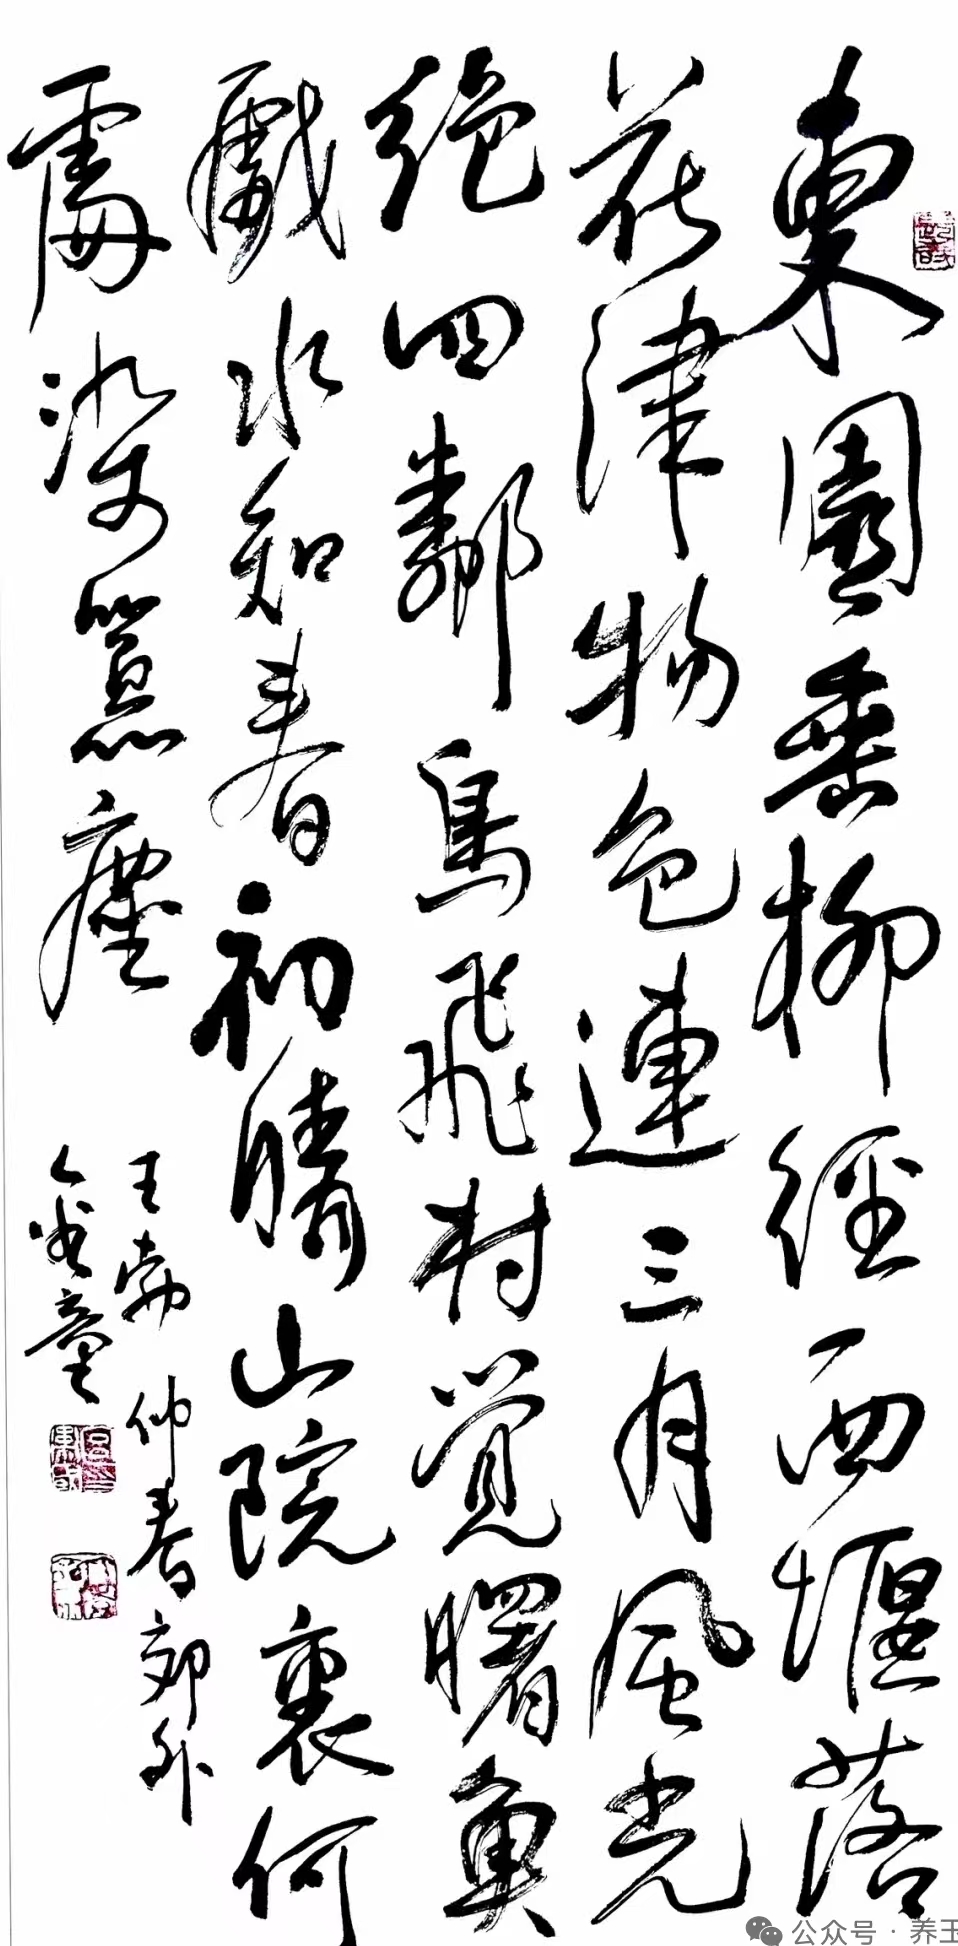 東園垂柳經西堰落
花津物色連三月風光
絕四鄰鳥飛村覺曙魚
戲水知春初晴山院裏何
處染囂塵
王勃仲春郊外
公众号 · 养玉